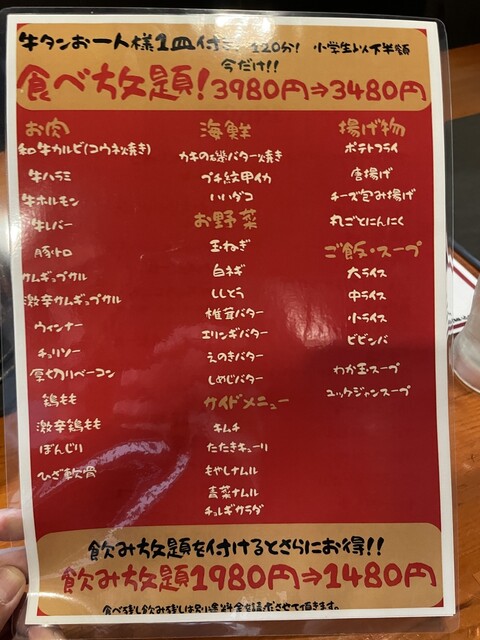 牛タンお一人様1皿付き 120分! 小学生以下半額
今だけ!!
食べ放題!3980円⇒3480円
お肉
和牛カルビ(コウネ焼き)
牛ハラミ
牛ホルモン
牛レバー
豚トロ
サムギョプサル
激辛サムギョプサル
ウィンナー
チョリソー
厚切りベーコン
鶏もも
激辛鶏もも
ぼんじり
ひざ軟骨
海鮮
カキの土手バター焼き
プチ紋甲イカ
いいダコ
お野菜
玉ねぎ
白ネギ
ししとう
椎茸バター
エリンギバター
えのきバター
しめじバター
サイドメニュー
キムチ
たたきキューリ
もやしナムル
青菜ナムル
チョレギサラダ
揚げ物
ポテトフライ
唐揚げ
チーズ包み揚げ
丸ごとにんにく
ご飯・スープ
大ライス
中ライス
小ライス
ビビンバ
わか玉スープ
ユッケジャンスープ
飲み放題を付けるとさらにお得!!
飲み放題1980円⇒1480円
食べ残し飲み残しは別途料金を請求させて頂きます。